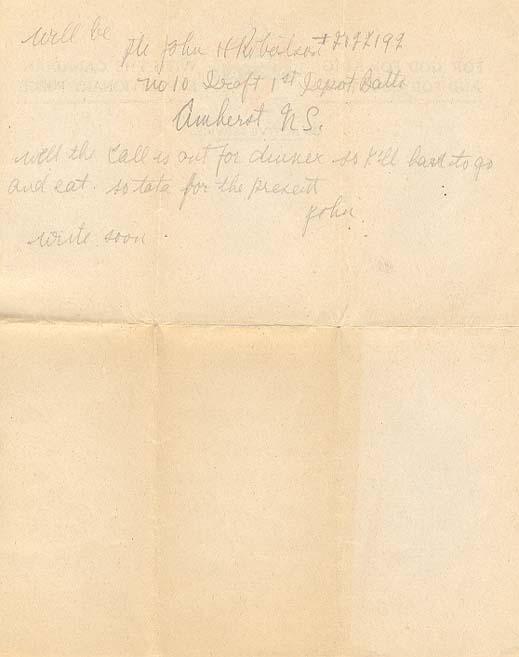 will be
Pte John H Robertson #
No 10 Draft 1st Depot Batts
Amherst N.S.
well the call is out for dinner so I'll have to go
and eat. so tata for the present
John
write soon